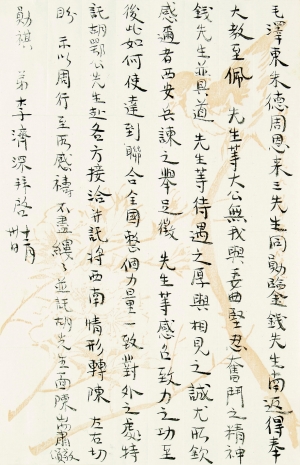 毛澤東朱德周恩來三先生同勛鑒錢先生南返得奉
大教至佩先生等大公無我與委曲堅忍奮鬥之精神
錢先生並具道先生等待遇之厚與相見之誠尤所欽
感邇者西安兵諫之舉足徵先生等感召致力之功至
後此如何使達到聯合全國整個力量一致對外之處特
託胡鄂公先生赴各方接洽并託將西南情形轉陳左右切
盼示以周行至所感禱不盡縷縷並託胡先生面陳耑肅敬
頌
勛祺 弟李濟深拜啓